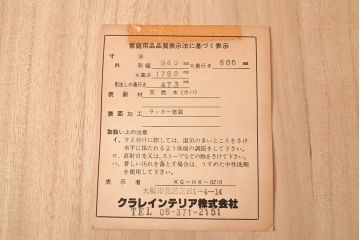 家庭用品品質表示法に基づく表示
寸法
外形幅 940 mm×奥行き 600 mm
×高さ 1780 mm
引出しの奥行き 473 mm
表面材 天然木(カバ)
表面加工 ラッカー塗装
取扱い上の注意
イ、すえ付けに際しては、湿気のまいところをさけ
水平に保たれるよう床面の調節をして下さい。
ロ、直射日光又は、ストーブなどの熱をさけて下さい。
ハ、著しい汚れを落とす場合は、うすめた中性洗剤
を使用して下さい。
表示者 KG-HK-0210
大阪市北区芝田1-4-14
クラレインテリア株式会社
TEL 06-371-2151